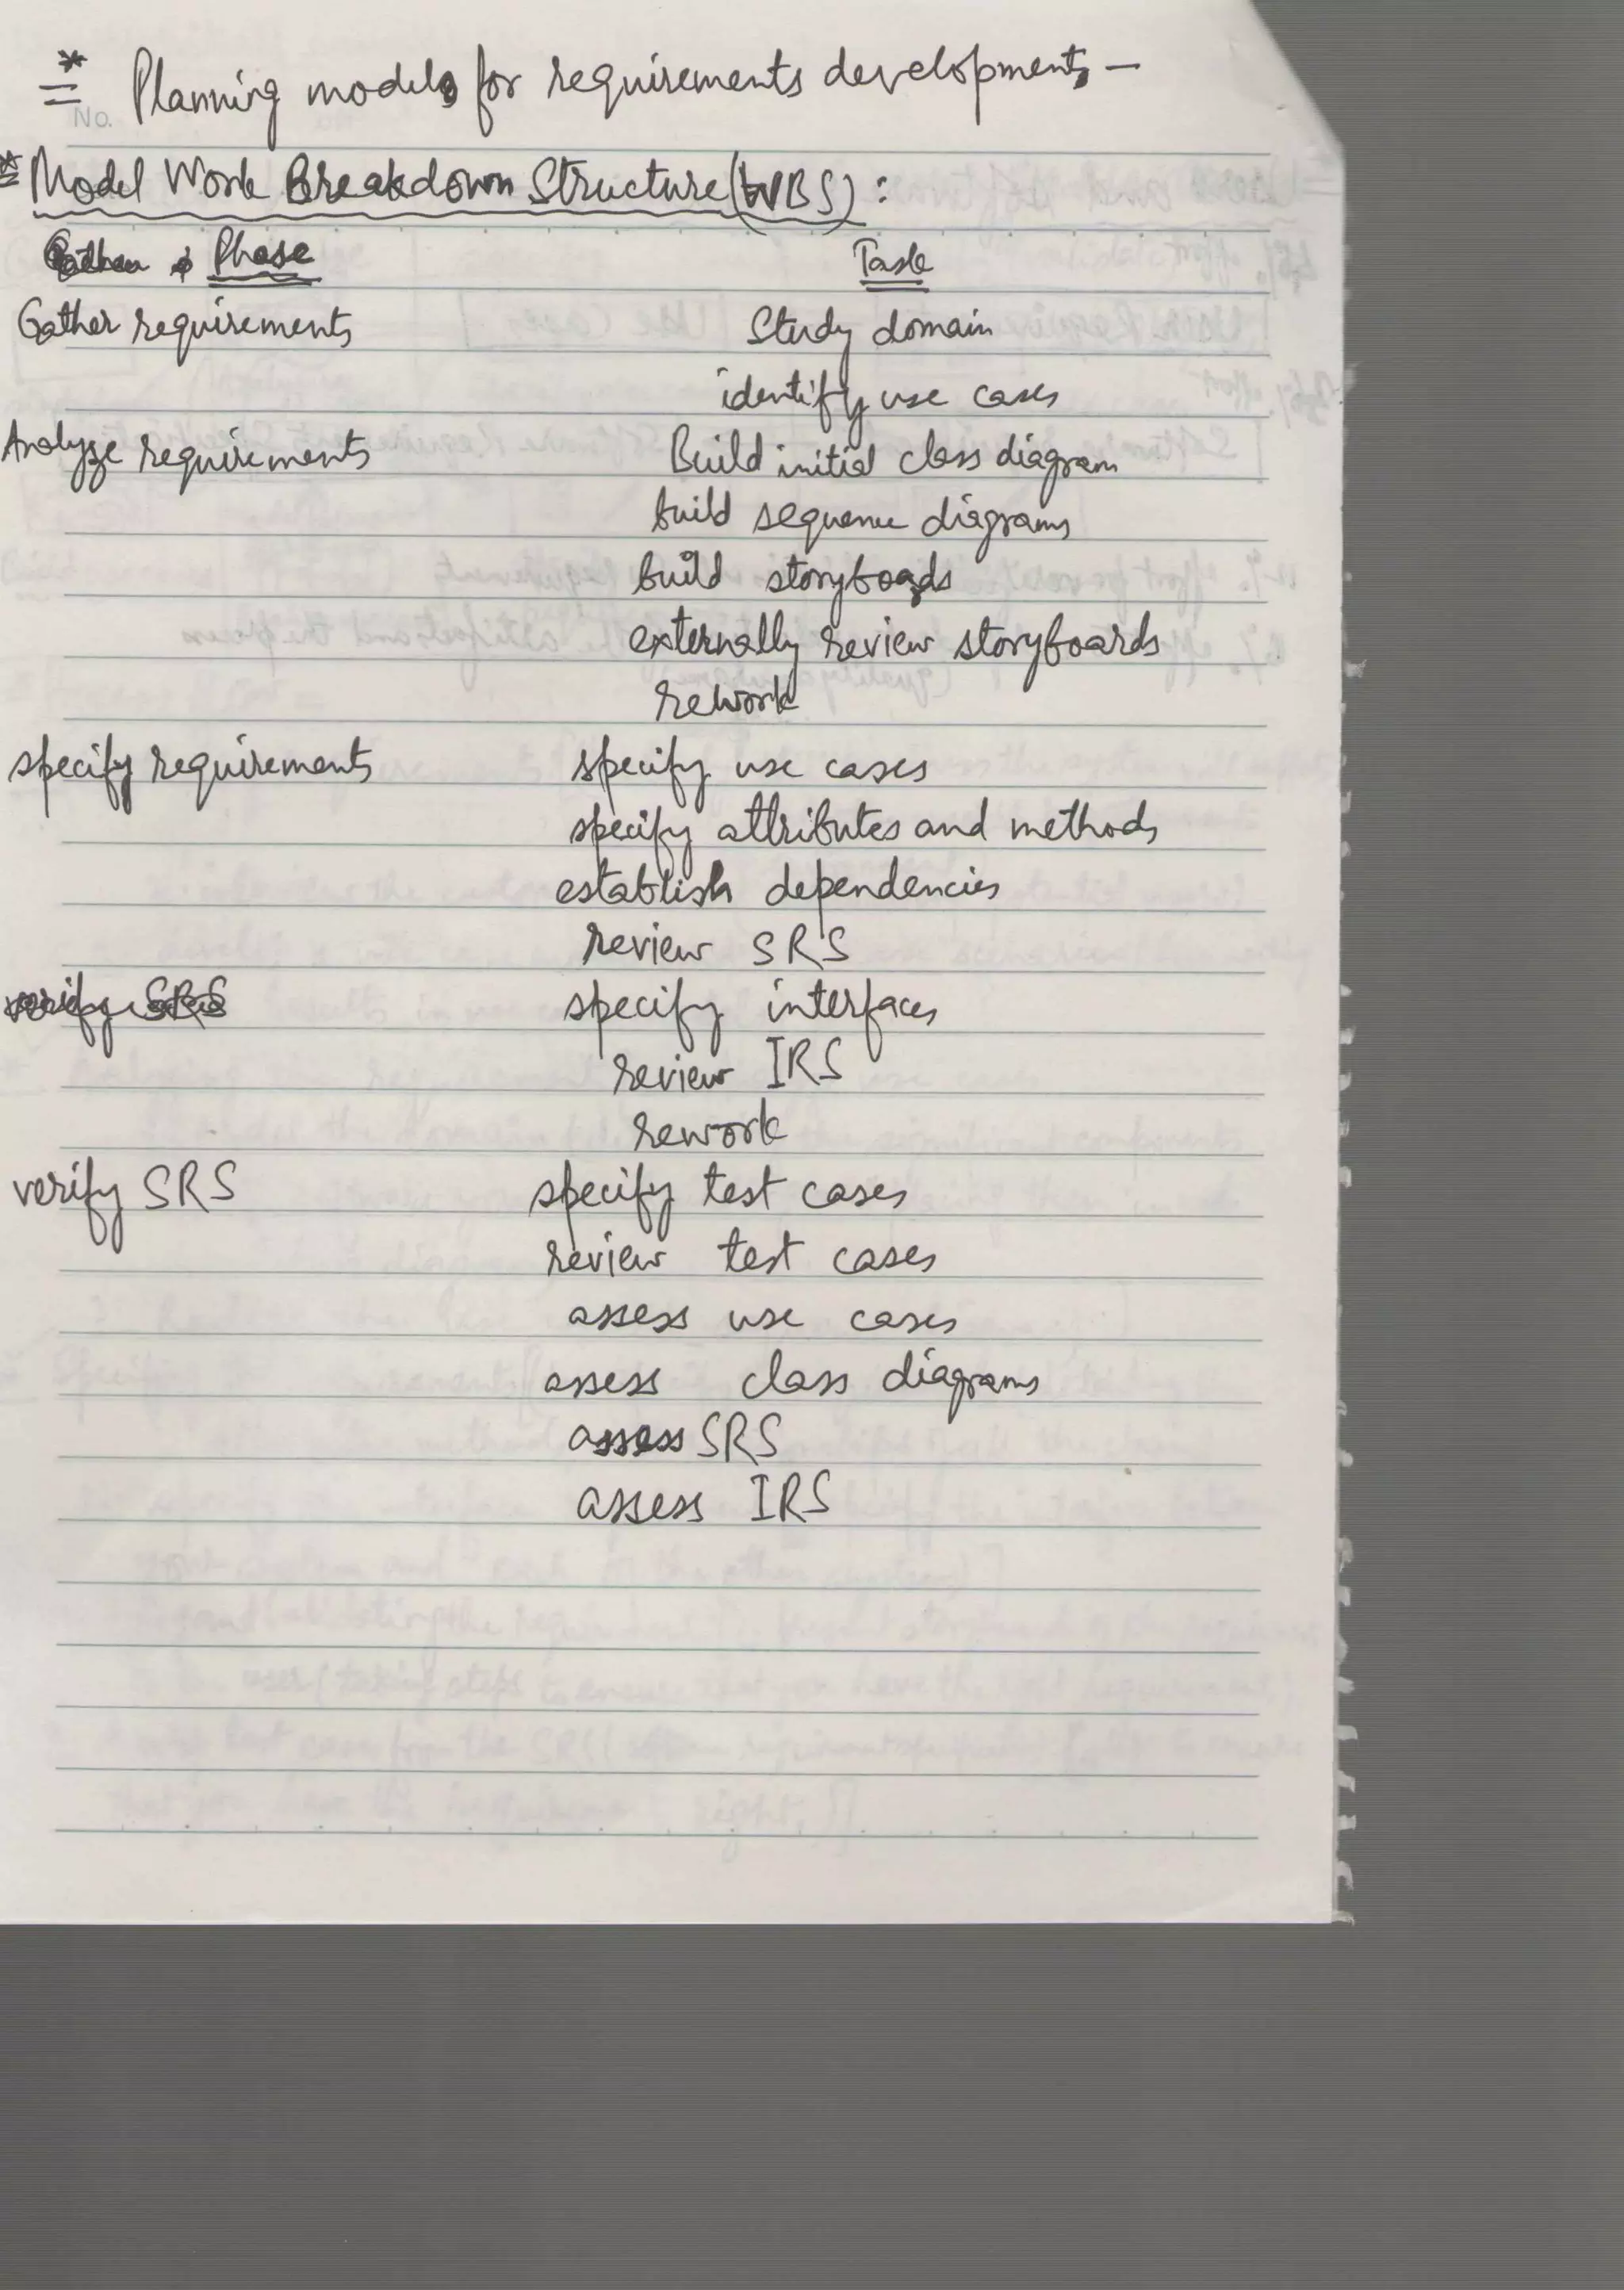 * Planning models for requirements development -
No.
* Model Work Breakdown Structure (WBS) :
Phase Task
Gather requirements Study domain
identify use cases
Analyze requirements Build initial class diagram
build sequence diagrams
build storyboads
externally review storyboards
rework
specify requirements specify use cases
specify attributes and methods
establish dependencies
review SRS
verify SRS specify interfaces
review IRS
rework
verify SRS specify test cases
review test cases
assess use cases
assess class diagrams
assess SRS
assess IRS